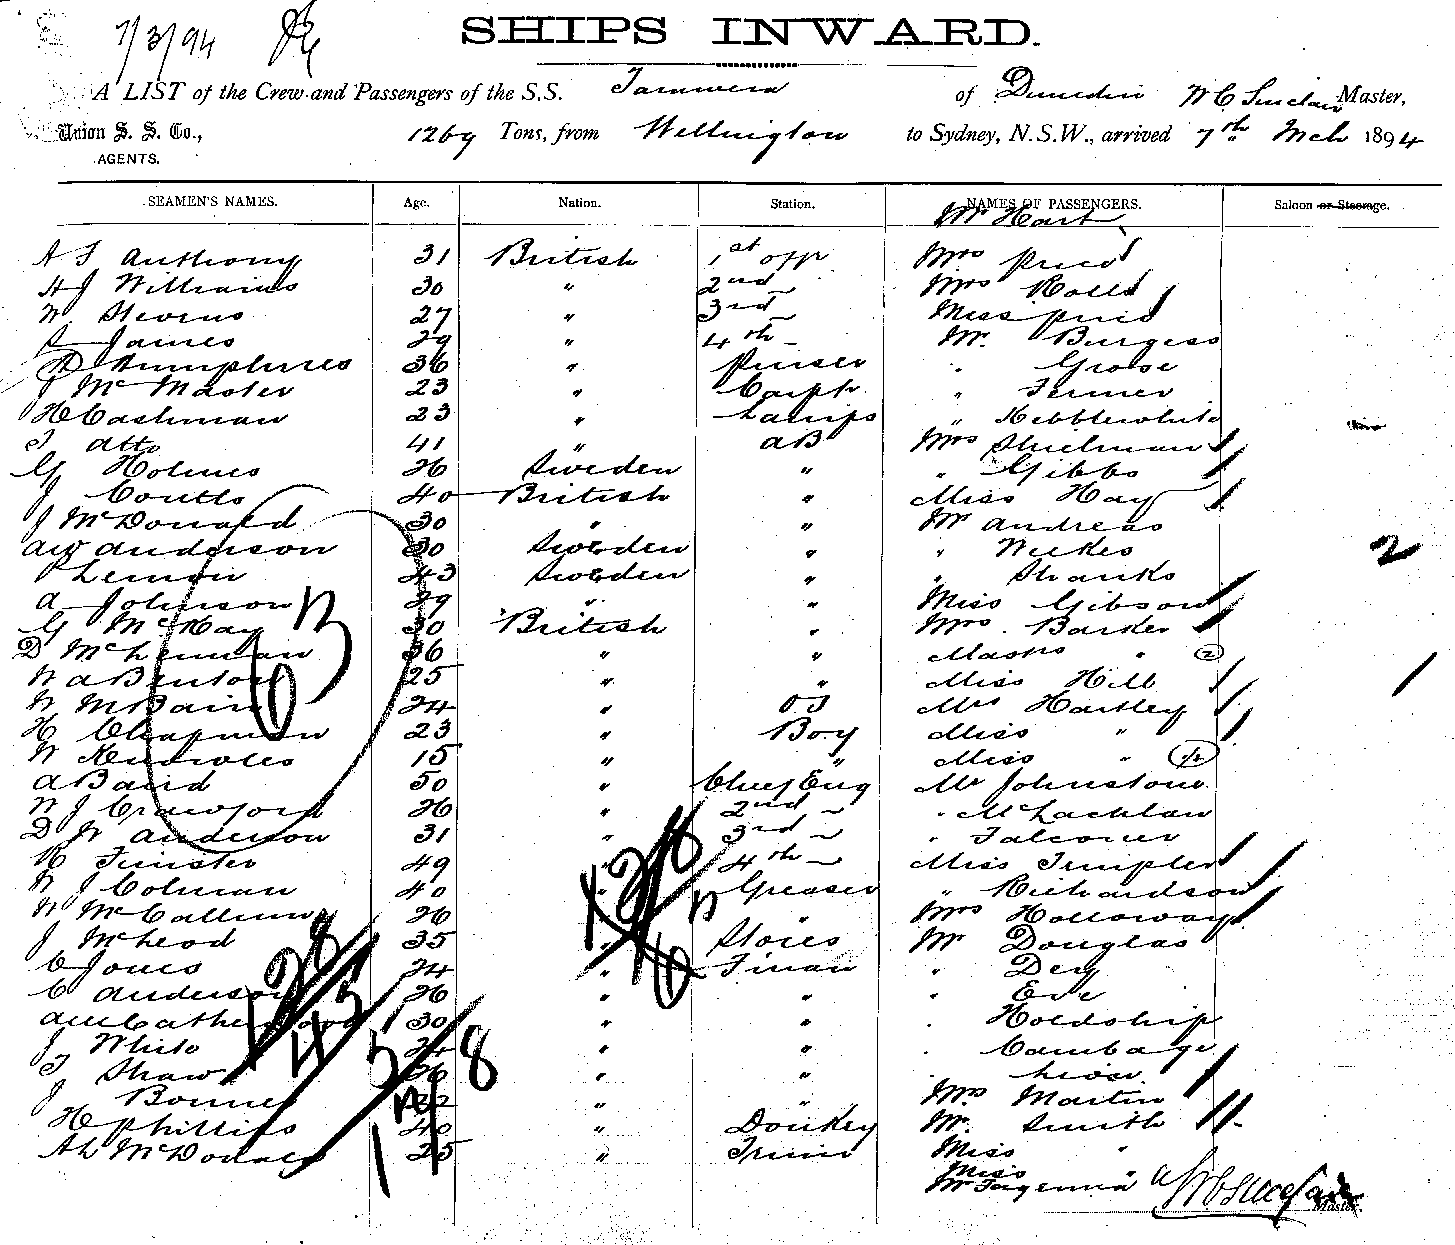 7/3/94
SHIPS INWARD.
A LIST of the Crew and Passengers of the S.S. Tarawera of Dunedin W C Sinclair Master,
Union S. S. Co., 1269 Tons, from Wellington to Sydney, N.S.W., arrived 7th Mch 1894
AGENTS.
SEAMEN'S NAMES. Age. Nation. Station. NAMES OF PASSENGERS. Saloon or Steerage.
Mr Hart
Anthony 31 British 1st off Mrs Price
H J Williams 30 " 2nd " Mrs Rolls
W Stevens 27 " 3rd " Miss Price
James 29 " 4th " Mr. Burgess
D Humphries 36 " Purser " Grose
J McMaster 23 " Carpt " Fermer
H Cashman 23 " Lamps " Hebblewhite
41 " AB Mrs
G Holmes 26 Sweden " " Gibbs
J Coutts 40 British " Miss Hay
J McDonald 30 " " Mr Andreas
A W Anderson 30 Sweden " " Weekes
P Lemon 43 Sweden " " Shanks
A Johnson 29 " " Miss Gibson
G McKay 30 British " Mrs. Barker
D McLennan 36 " " Mastrs " 2
W A Benton 25 " " Miss Hill
W McBain 24 " OS Mrs Hartley
H Chapman 23 " Boy Miss "
W Knowles 15 " " Miss "
A Baird 50 " Chief Eng Mr Johnstone
W J Crawford 26 " 2nd " " McLachlan
D W Anderson 31 " 3rd " " Falconer
49 " 4th " Miss Templer
W J Colman 40 " Greaser " Richardson
W McCallum 26 " " Mrs Holloway
J McLeod 35 " Stores Mr Douglas
C Jones 24 " Fireman " Dey
C Anderson 26 " " " Eve
30 " " " Holdship
J White 24 " " " Cambage
T Shaw 26 " "
J " " Mrs Martin
H Phillips 40 " Donkey Mr. Smith
McDonald 25 " Trimr Miss "
Miss "
Mr
Master.